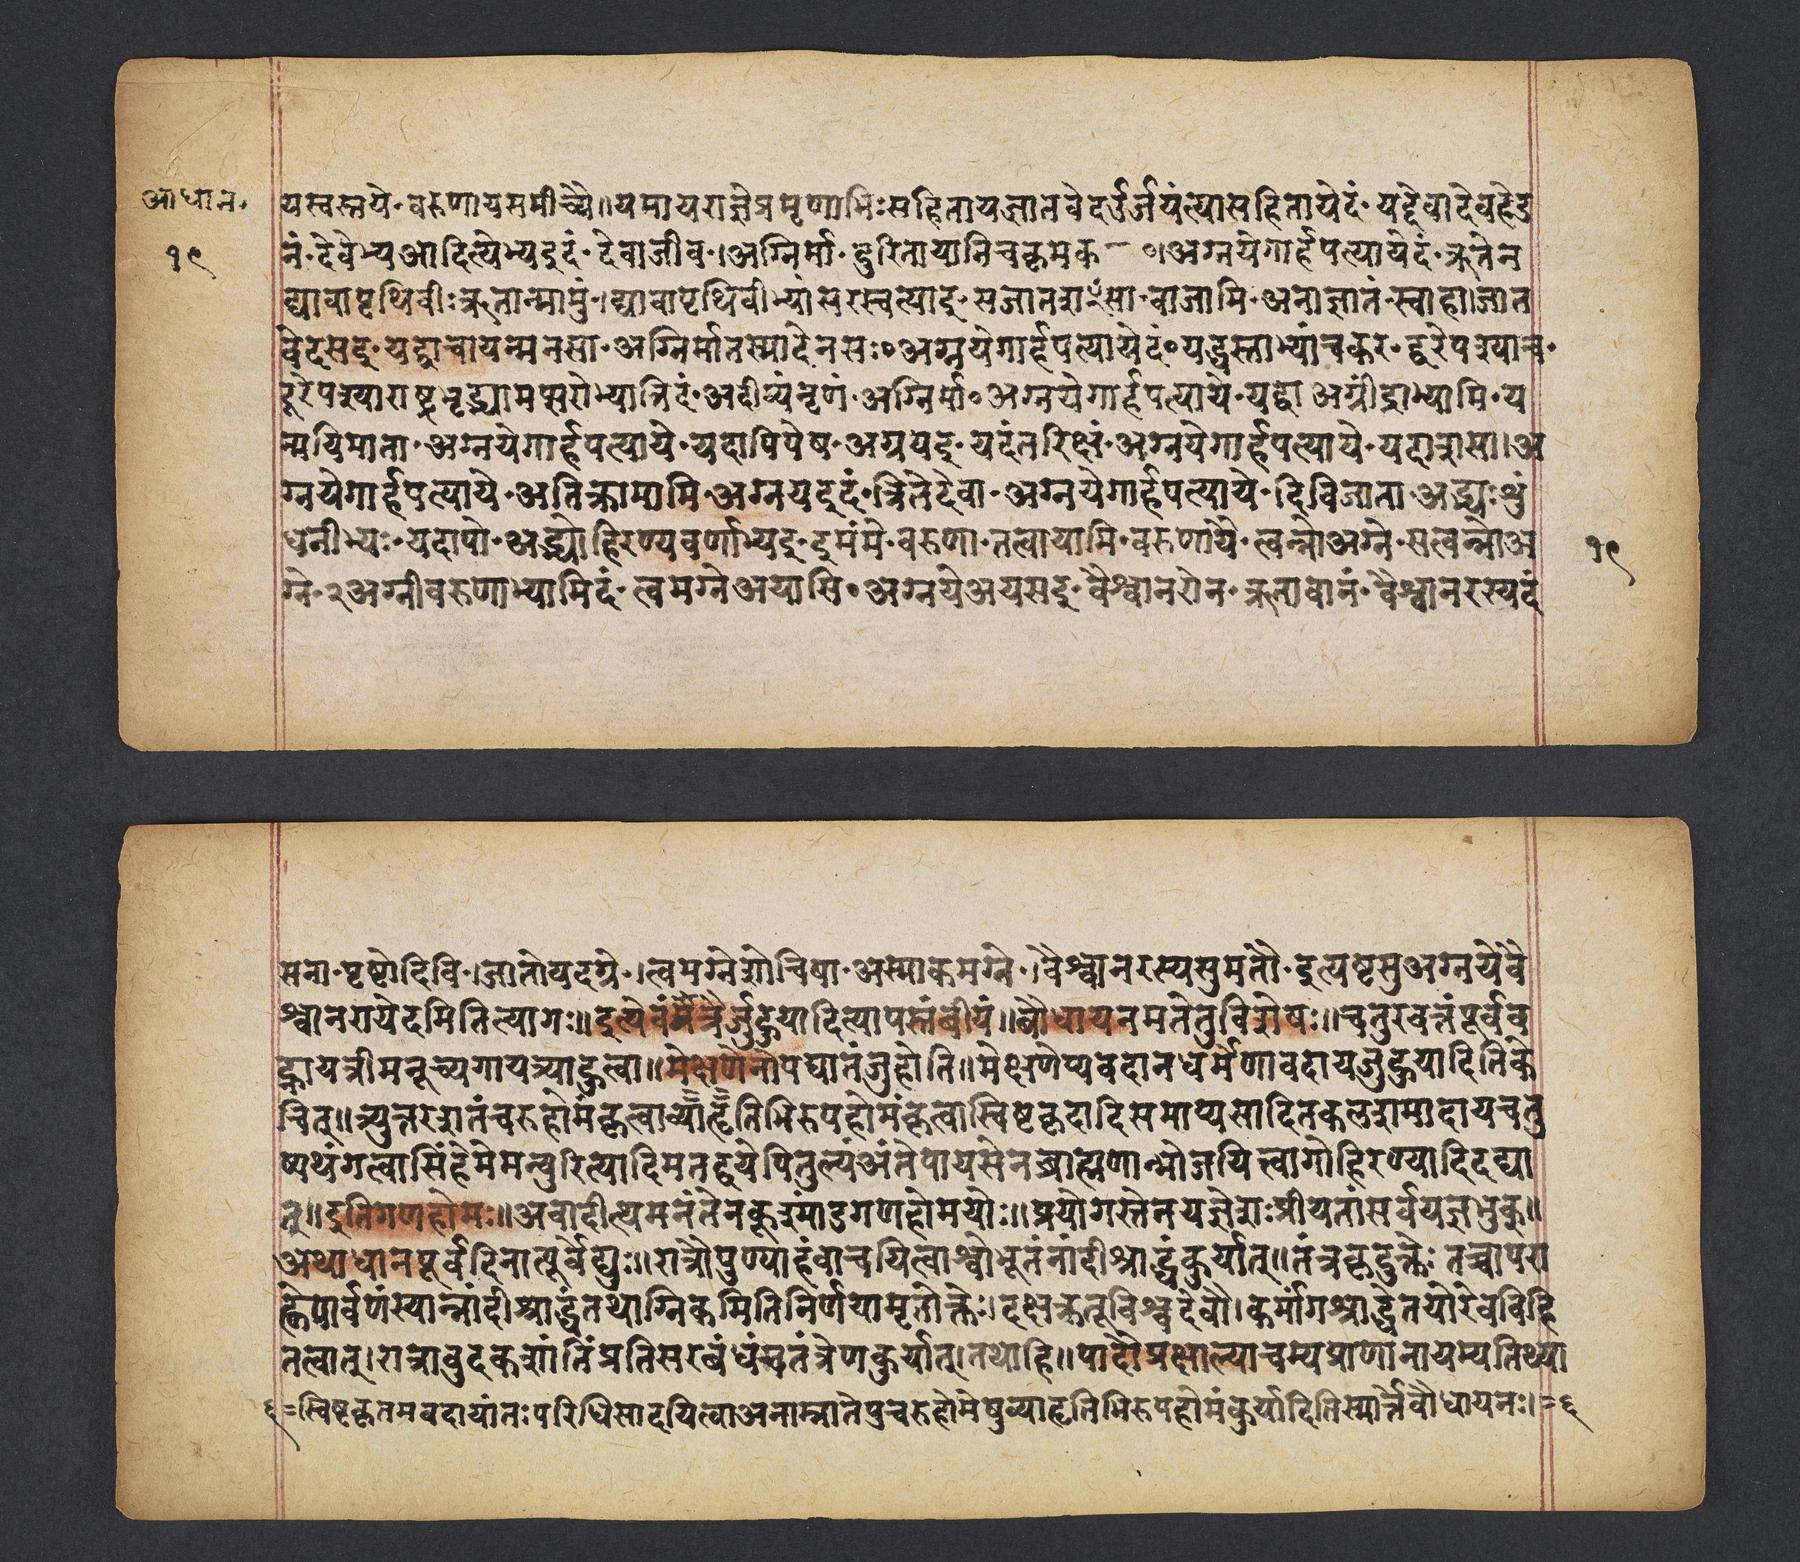 आधान॰
१९
यस्वस्तये॰वरुणायसमीच्यै॥यमायराज्ञेप्रमृणामिःसहितायजातवेदर्उर्जयंत्यासहितायेदं॰यद्देवादेवहेड
नं॰देवेभ्यआदित्येभ्यइदं॰देवाजीव॰।अग्निर्मा॰दुरितायानिचकृमक ॰।अग्नयेगार्हपत्यायेदं॰ऋतेन
द्यावापृथिवीःऋतान्मामुं॰।द्यावापृथिवीभ्यांसरस्वत्याइ॰सजातशꣳसा॰वाजामि॰अनाज्ञातं॰स्वाहा।जात
वेदसइ॰यद्वाचायन्मनसा॰अग्निर्मातस्मादेनसः॰अग्नयेगार्हपत्यायेदं॰यद्धस्ताभ्यांचकर॰दूरेपश्याच॰
दूरेपश्याराष्ट्रभृद्ध्यामप्सरोभ्यामिदं॰अदीव्यंनृणं॰अग्निर्मा॰अग्नयेगार्हपत्याये॰यद्वा अग्नींद्राभ्यामि॰य
न्मयिमाता॰अग्नयेगार्हपत्याये॰यदापिपेष॰अग्नयेइ॰यदंतरिक्षं॰अग्नयेगार्हपत्याये॰यदाशसा।अ
ग्नयेगार्हपत्याये॰अतिक्रामामि॰अग्नयइदं॰त्रितेदेवा॰अग्नयेगार्हपत्याये॰दिविजाता॰अद्भ्यःशुं
धनीभ्यः॰यदापो॰अद्भ्योहिरण्यवर्णाभ्यइ॰इमंमे॰वरुणा॰तत्वायामि॰वरुणाये॰त्वन्नोअग्ने॰सत्वन्नोअ
१९
ग्ने॰२अग्नीवरुणाभ्यामिदं॰त्वमग्नेअयासि॰अग्नयेअयसइ॰वैश्वानरोन॰ऋतावानं॰वैश्वानरस्यदं
सना॰पृष्टोदिवि॰।जातोयदग्ने॰।त्वमग्नेशोचिषा॰अस्माकमग्ने॰।वैश्वानरस्यसुमतौ॰इत्यष्टसुअग्नयेवै
श्वानरायेदमितित्यागः॥इत्येवंमंत्रैर्जुहुयादित्यापस्तंबीयं॥बौधायनमतेतुविशेषः॥चतुरवत्तंपूर्वव
द्गायत्रीमनूच्यगायत्र्याहुत्वा॥मेक्षणेनोपघातंजुहोति॥मेक्षणेप्यवदानधर्मेणावदायजुहुयादितिके
चित्॥त्र्युत्तरशतंचरुहोमंकृत्वाव्याहृतिभिरुपहोमंकृत्वास्विष्टकृदादिसमाप्यसादितकलशमादायचतु
ष्पथंगत्वासिंहेमेमन्युरित्यादिमतद्वयेपितुल्यंअंतेपायसेनब्राह्मणान्भोजयित्वागोहिरण्यादिदद्या
त्॥इतिगणहोमः॥अवादीत्थमनंतेनकूश्मांडगणहोमयोः॥प्रयोगस्तेनयज्ञेशःप्रीयतांसर्वयज्ञभुक्॥
अथाधानपूर्वदिनात्पूर्वेद्युः॥रात्रौपुण्याहंवाचयित्वाश्वोभूतेनांदीश्राद्धंकुर्यात्॥तंत्रकृदुक्तेः तच्चापरा
ह्णेपार्वणंस्यान्नांदीश्राद्धंतथाग्निकमितिनिर्णयामृतोक्तेः।दक्षक्रतूविश्वदेवौ।कर्मांगश्राद्धेतयोरेवविहि
तत्वात्।रात्रावुदकशांतिंप्रतिसरबंधंचतंत्रेणकुर्यात्।तथाहि॥पादौप्रक्षाल्याचम्यप्राणानायम्यतिथ्या
६=स्विष्टकृतमवदायांतःपरिधिसादयित्वाअनाम्नातेषुचरुहोमेषुव्याहृतिभिरुपहोमंकुर्यादितिस्मार्त्तेबौधायनः।=६